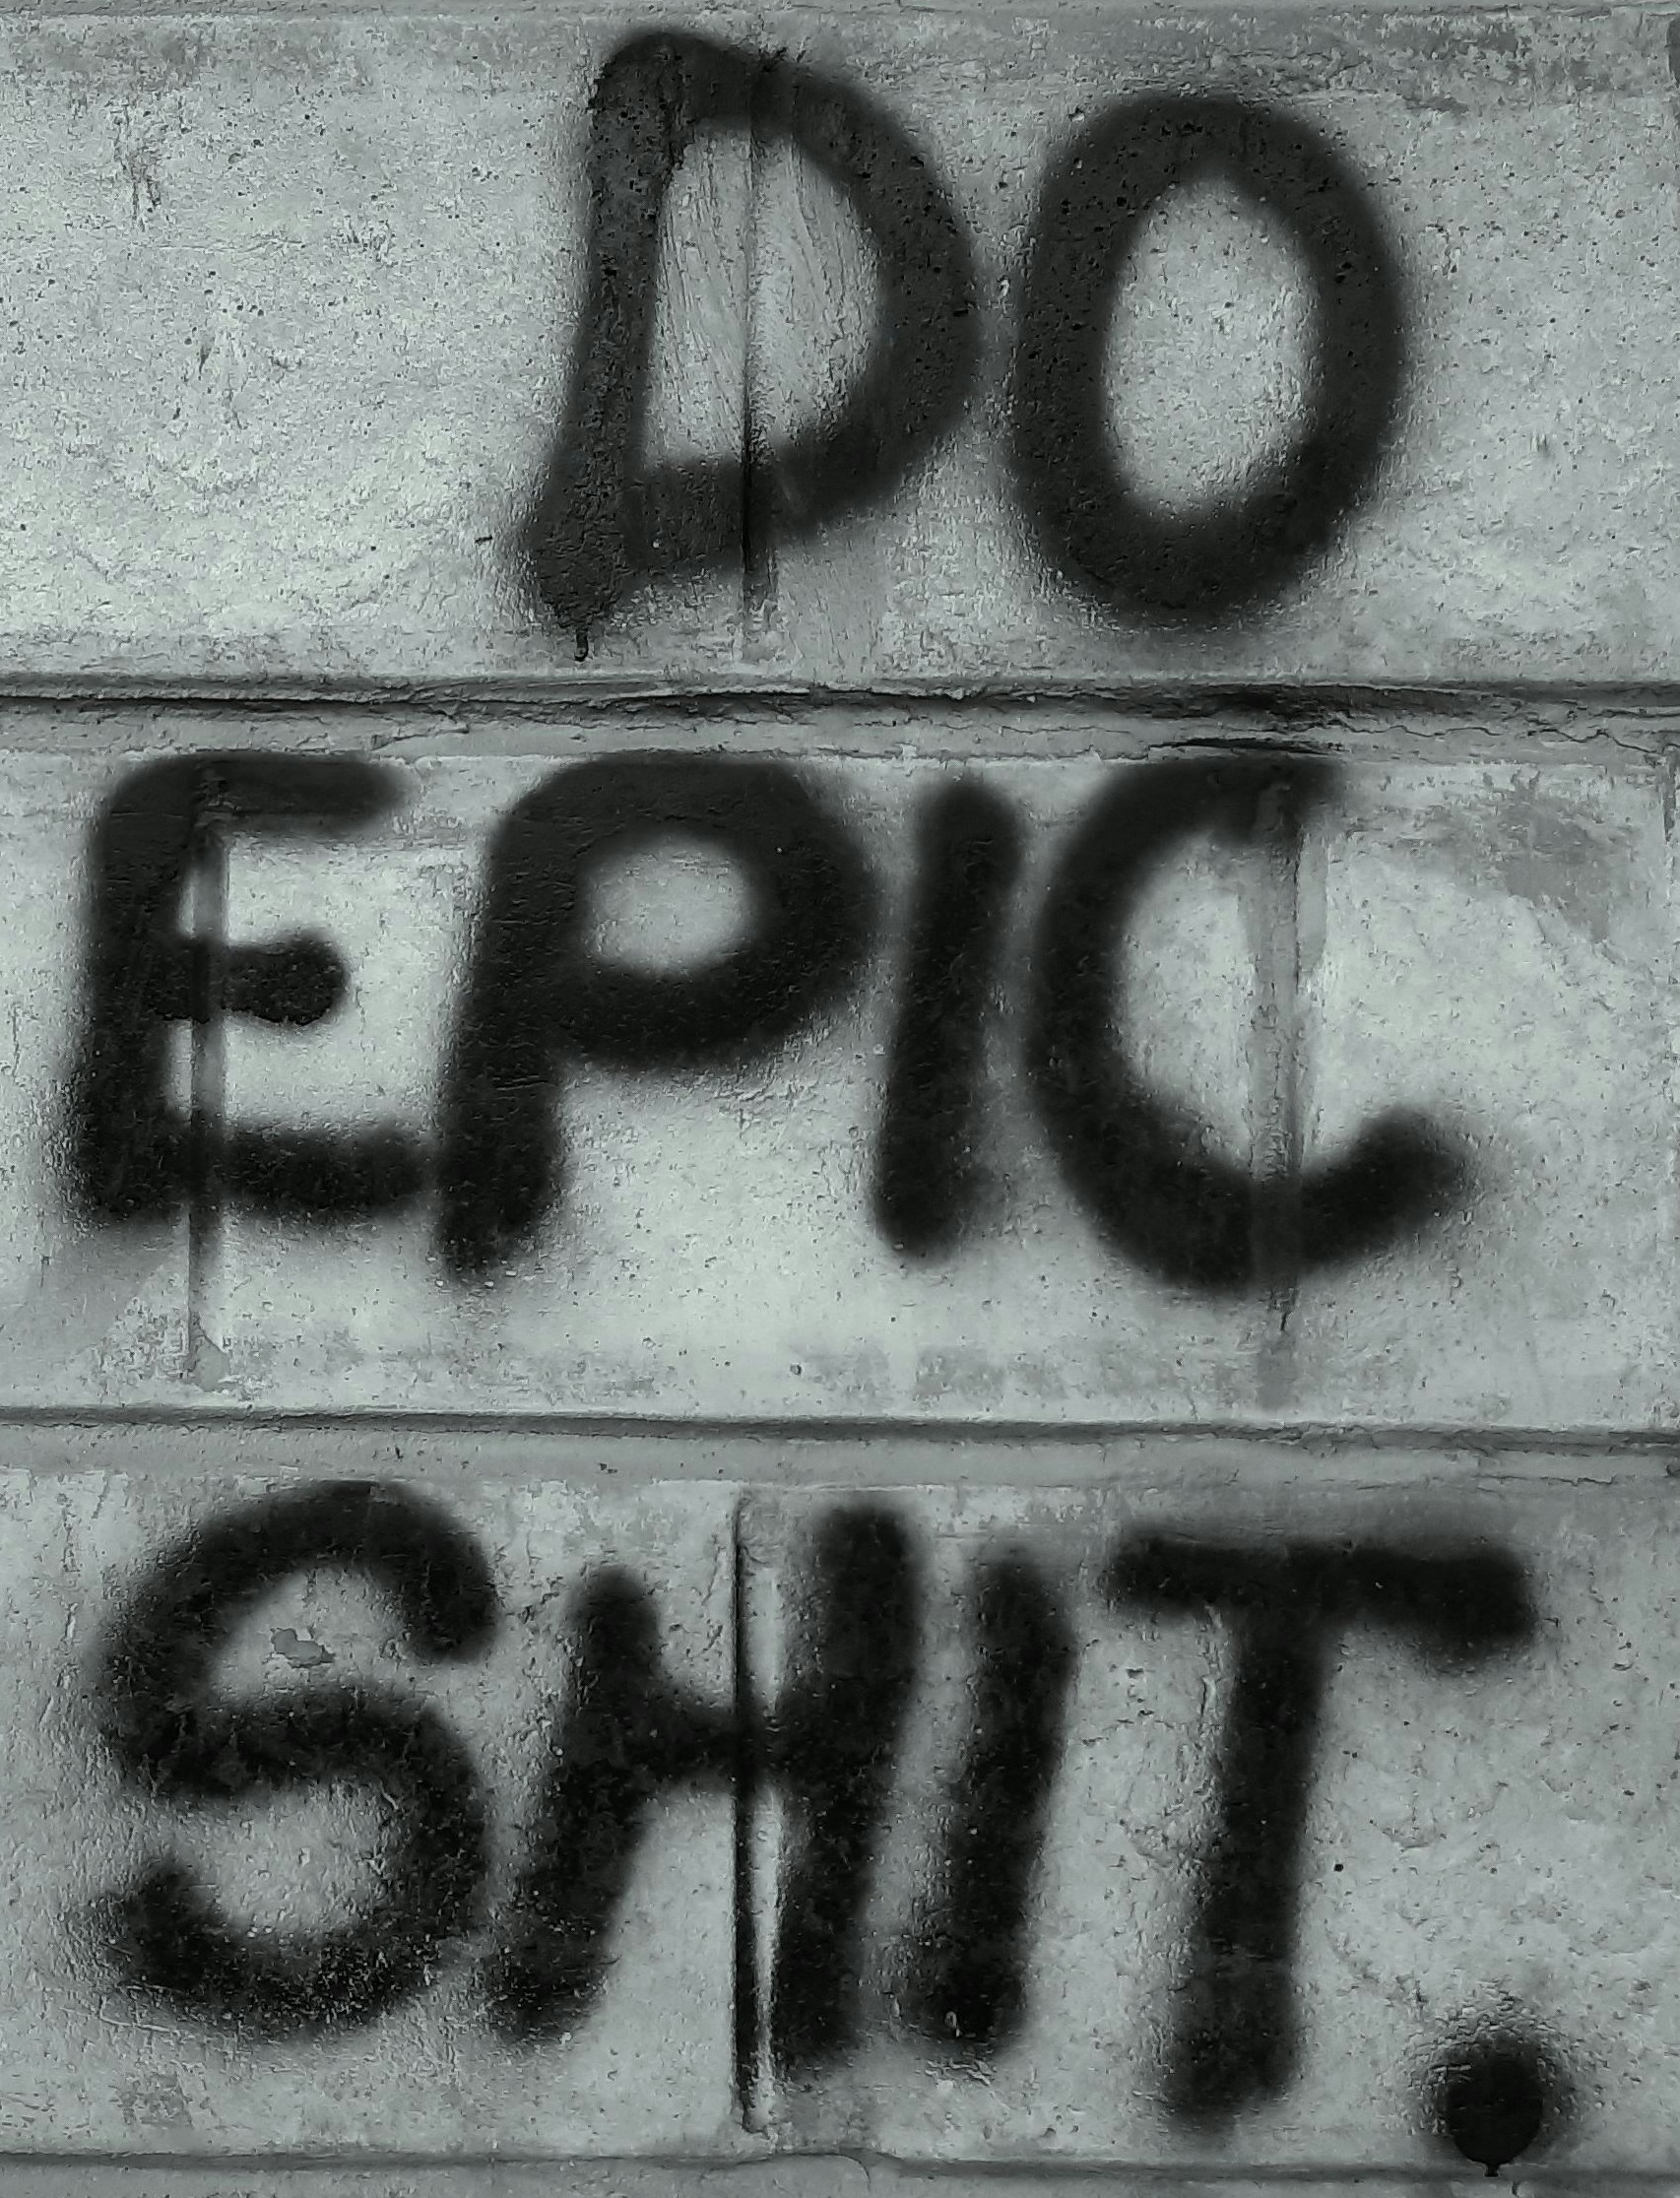 DO
EPIC
SHIT.